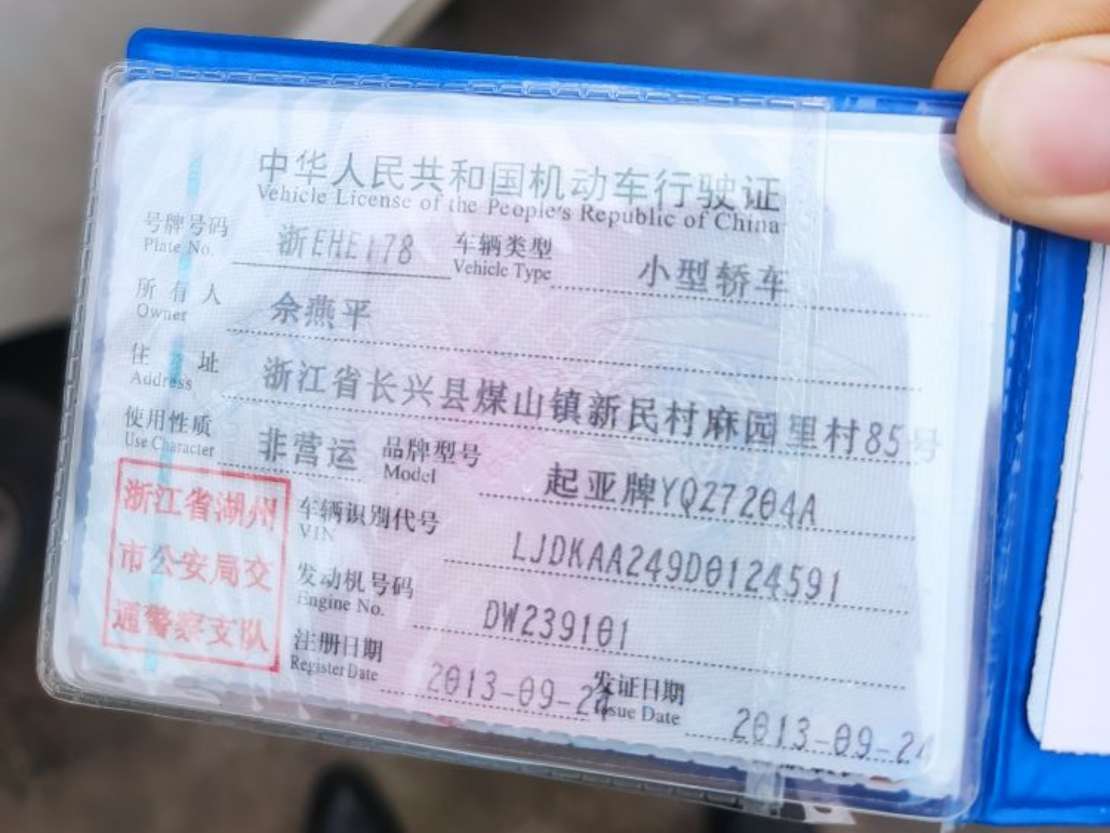 中华人民共和国机动车行驶证
Vehicle License of the People's Republic of China
号牌号码 浙EHE178 车辆类型 小型轿车
Plate No. Vehicle Type
所有人 佘燕平
Owner
住址 浙江省长兴县煤山镇新民村麻园里村85号
Address
使用性质 非营运 品牌型号 起亚牌YQZ7204A
Use Character Model
浙江省湖州
市公安局交
通警察支队
车辆识别代号 LJDKAA249D0124591
VIN
发动机号码 DW239101
Engine No.
注册日期 2013-09-24 发证日期 2013-09-24
Register Date Issue Date